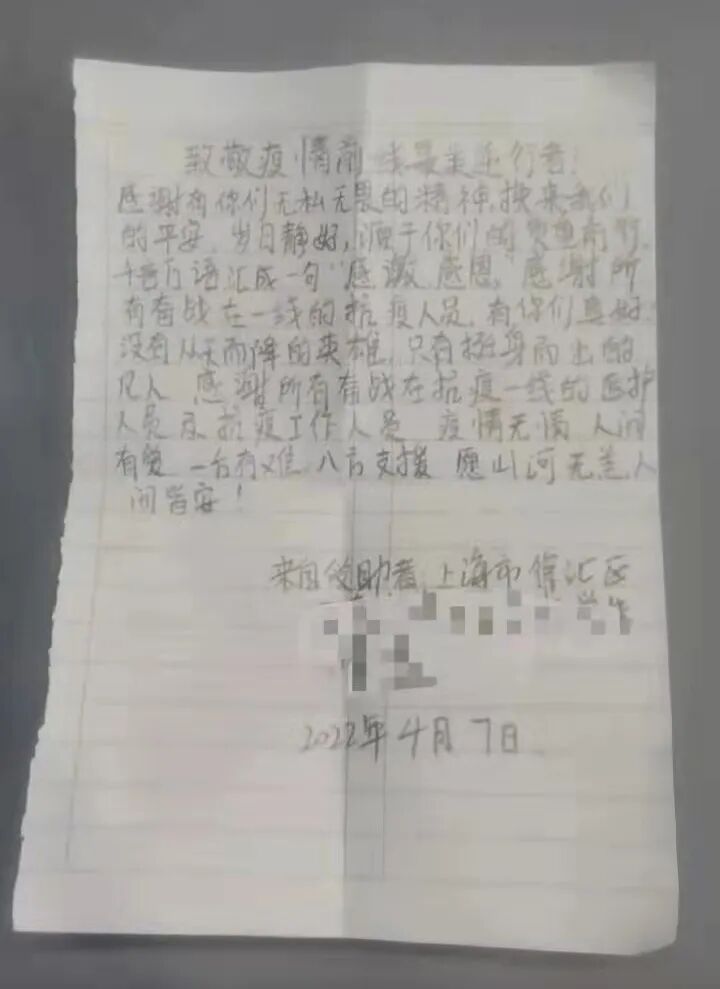 致敬疫情前线最美逆行者!
感谢有你们无私无畏的精神,换来我们
的平安。岁月静好,源于你们的负重前行.
千言万语汇成一句“感激 感恩”感谢所
有奋战在一线的抗疫人员,有你们真好.
没有从天而降的英雄,只有挺身而出的
凡人 感谢所有奋战在抗疫一线的医护
人员及抗疫工作人员 疫情无情 人间
有爱 一方有难 八方支援 愿山河无恙,人
间皆安!
来自 受助者 上海市徐汇区
2022年4月7日